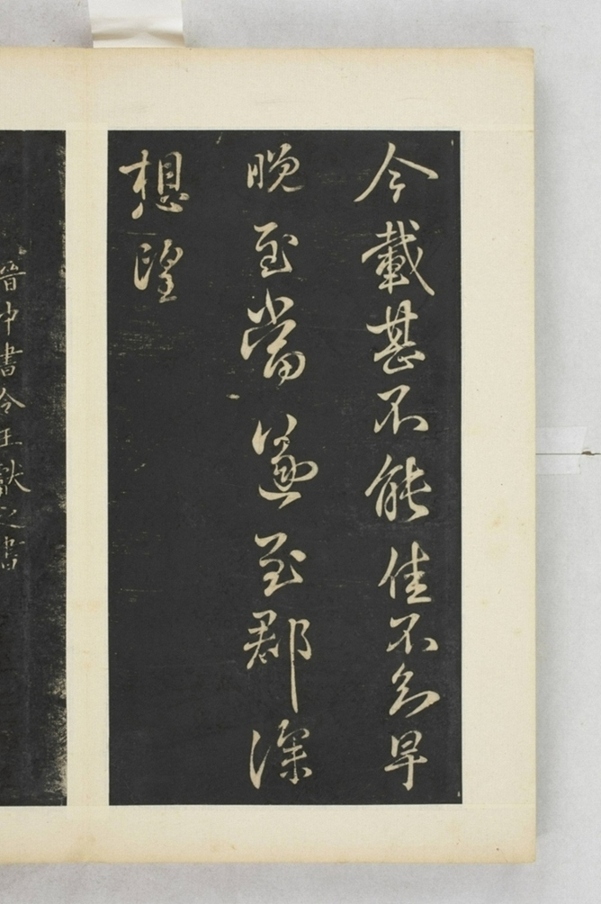 今載甚不能佳不知早
晚至當遂至郡深
想望
晉中書令王獻之書